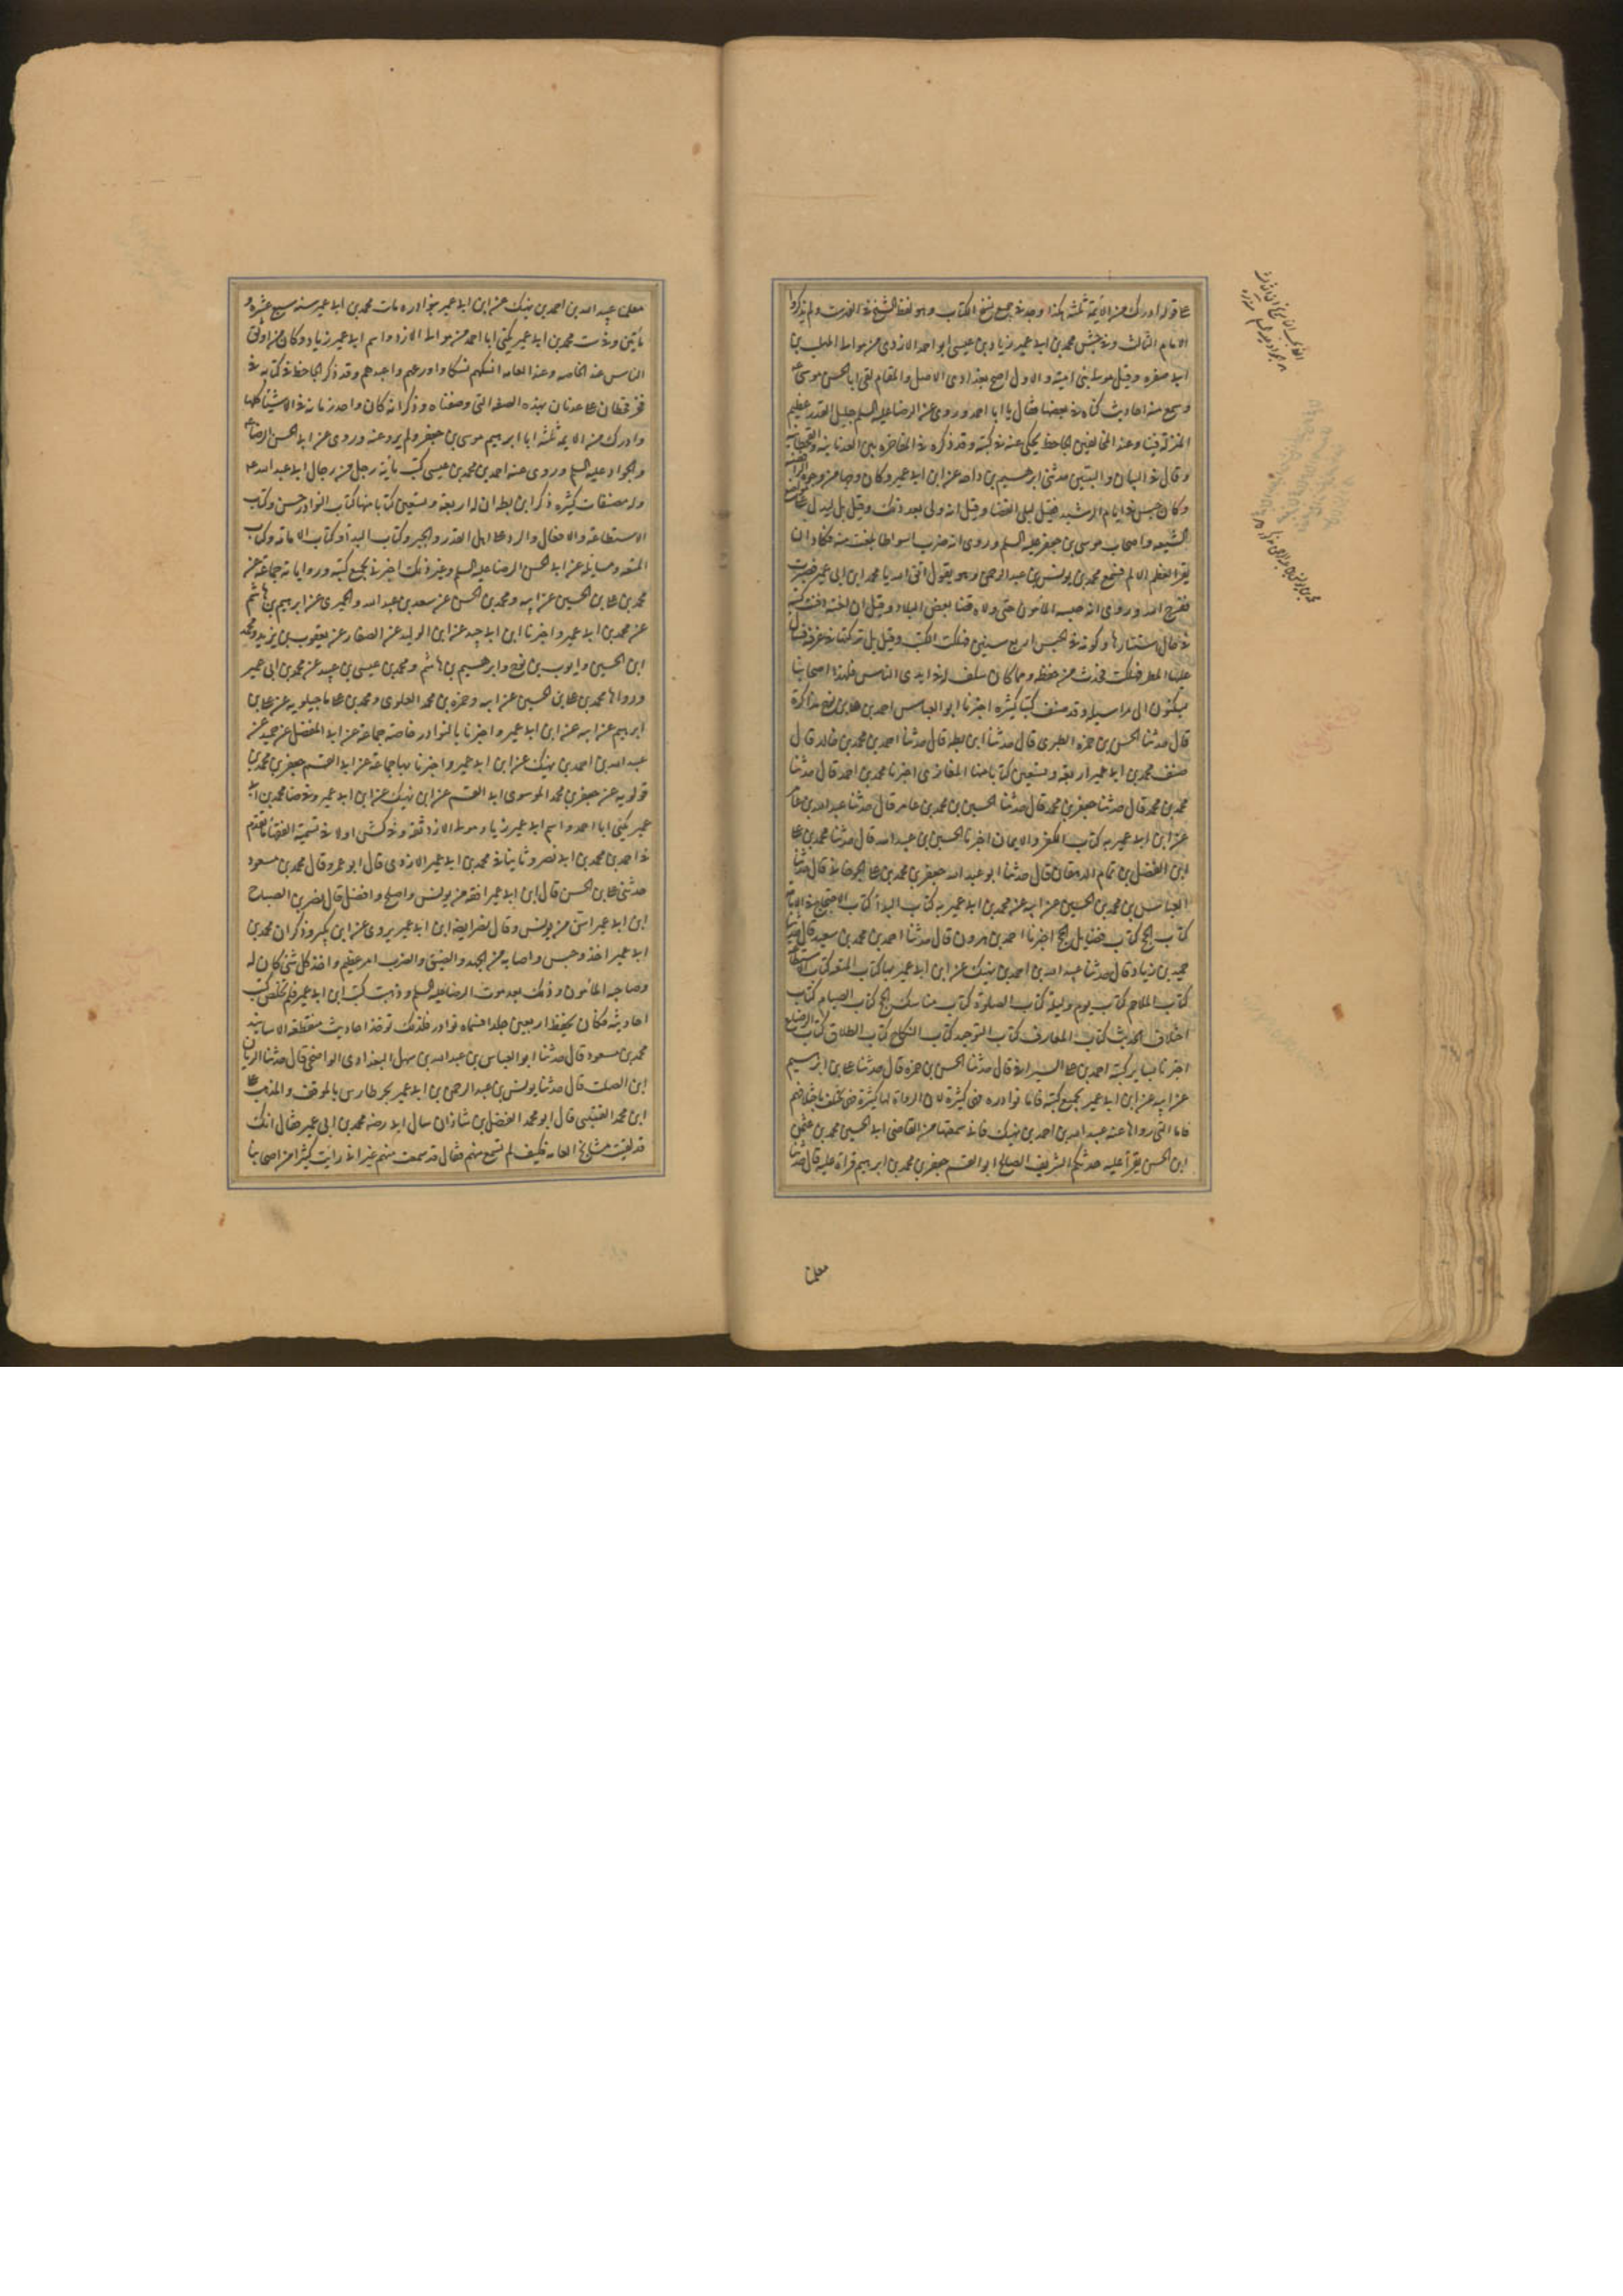 على قوله ادرك من الائمة ثلثة هكذا وجدنا في جميع نسخ الكتاب وهو لفظ الشيخ في الفهرست ولم يذكروا
الامام الثالث وفي جش محمد بن ابي عمير زياد بن عيسى ابو احمد الازدي من موالي المهلب بن
ابي صفره وقيل مولى بني امية والاول اصح بغدادي الاصل والمقام لقي ابا الحسن موسى ع
وسمع منه احاديث كناه في بعضها فقال يا ابا احمد وروى عن الرضا عليه السلم جليل القدر عظيم
المنزلة فينا وعند المخالفين الجاحظ يحكي عنه في كتبه وقد ذكره في المفاخره بين العدنانية والقحطانية
وقال في البيان والتبيين حدثني ابرهيم بن داحه عن ابن ابي عمير وكان وجها من وجوه الرافضة
وكان حبس في ايام الرشيد فقيل ليلي القضا وقيل انه ولي بعد ذلك وقيل بل ليدل على مواضع
الشيعه واصحاب موسى بن جعفر عليه السلم وروى انه ضرب اسواطا بلغت منه فكاد ان
يقر لعظم الالم فسمع محمد بن يونس بن عبد الرحمن وهو يقول اتق الله يا محمد ابن ابي عمير فصبرت
ففرج الله وروى انه حبسه المأمون حتى ولاه قضا بعض البلاد وقيل ان اخته دفنت كتبه
في حال استتارها وكونه في الحبس اربع سنين فهلكت الكتب وقيل بل تركتها في غرفة فسال
عليها المطر فهلكت فحدث من حفظه ومما كان سلف له في ايدي الناس فلهذا اصحابنا
يسكنون الى مراسيله وقد صنف كتبا كثيره اخبرنا ابو العباس احمد بن علي بن نوح مذاكرة
قال حدثنا الحسن بن حمزه الطبري قال حدثنا ابن بطه قال حدثنا احمد بن محمد بن خالد قال
صنف محمد بن ابي عمير اربعة وتسعين كتابا منها المغازي اخبرنا محمد بن احمد قال حدثنا
محمد بن محمد قال حدثنا جعفر بن محمد قال حدثنا الحسين بن محمد بن عامر قال حدثنا عبد الله بن عامر
عن ابن ابي عمير به كتاب الكفر والايمان اخبرنا الحسين بن عبيد الله قال حدثنا محمد بن علي
ابن الفضل بن تمام الدهقان قال حدثنا ابو عبد الله جعفر بن محمد بن على الحرقاني قال حدثنا
العباس بن محمد بن الحسين عن ابيه عن محمد بن ابي عمير به كتاب البدأ كتاب الاحتجاج في الامامة
كتاب الحج كتاب فضايل الحج اخبرنا احمد بن هرون قال حدثنا احمد بن محمد بن سعيد قال حدثنا
حميد بن زياد قال حدثنا عبيد الله بن احمد بن نهيك عن ابن ابي عمير بها كتاب المتعه كتاب الاستطاعه
كتاب الملاحم كتاب يوم وليلة كتاب الصلوة كتاب مناسك الحج كتاب الصيام كتاب
اختلاف الحديث كتاب المعارف كتاب التوحيد كتاب النكاح كتاب الطلاق كتاب الرضاع
اخبرنا بساير كتبه احمد بن علي السيرافي قال حدثنا الحسن بن حمزه قال حدثنا علي بن ابرهيم
عن ابيه عن ابن ابي عمير بجميع كتبه فاما نوادره فهي كثيرة لان الرواة لها كثيرة فهي تختلف باختلافهم
فاما التي رواها عنه عبيد الله بن احمد بن نهيك فاني سمعتها من القاضي ابي الحسين محمد بن عثمن
ابن الحسن يقرأ عليه حدثكم الشريف الصالح ابو القسم جعفر بن محمد بن ابرهيم قراة عليه قال حدثنا
معلمنا
معلمنا عبيد الله بن احمد بن نهيك عن ابن ابي عمير بنوادره مات محمد بن ابي عمير سنه سبع عشره و
مأتين وفي ست محمد بن ابي عمير يكنى ابا احمد من موالي الازد واسم ابي عمير زياد وكان من اوثق
الناس عند الخاصه وعند العامه انسكهم نسكا واورعهم واعبدهم وقد ذكر الجاحظ في كتابه في
فخر قحطان على عدنان بهذه الصفه التي وصفناه وذكر انه كان واحد زمانه في الاشيا كلها
وادرك من الايمه ثلثة ابا ابرهيم موسى بن جعفر ولم يرو عنه وروى عن ابي الحسن الرضا ع
والجواد عليه السلم وروى عنه احمد بن محمد بن عيسى كتب ماية رجل من رجال ابي عبد الله ع
وله مصنفات كثيره ذكر ابن بطه ان له اربعة وتسعين كتابا منها كتاب النوادر حسن وكتب
الاستطاعه والافعال والرد على اهل القدر والجبر وكتاب البدأ وكتاب الامامه وكتاب
المتعه ومسايله عن ابي الحسن الرضا عليه السلم وغير ذلك اخبرنا بجميع كتبه ورواياته جماعة عن
محمد بن علي بن الحسين عن ابيه ومحمد بن الحسن عن سعد بن عبد الله والحميري عن ابرهيم بن هاشم
عن محمد بن ابي عمير واخبرنا ابن ابي جيد عن ابن الوليد عن الصفار عن يعقوب بن يزيد ومحمد
ابن الحسين وايوب بن نوح وابرهيم بن هاشم ومحمد بن عيسى بن عبيد عن محمد بن ابي عمير
ورواها محمد بن علي بن الحسين عن ابيه وحمزه بن محمد العلوي ومحمد بن علي ماجيلويه عن علي بن
ابرهيم عن ابيه عن ابن ابي عمير واخبرنا بالنوادر خاصه جماعة عن ابي المفضل عن حميد عن
عبيد الله بن احمد بن نهيك عن ابن ابي عمير واخبرنا بها جماعة عن ابي القسم جعفر بن محمد بن
قولويه عن جعفر بن محمد الموسوي ابي القسم عن ابن نهيك عن ابن ابي عمير وفي ضا محمد بن ابي
عمير يكنى ابا احمد واسم ابي عمير زياد مولى الازد ثقه وفي كش اولا في تسمية الفقهأ ما تقدم
في احمد بن محمد بن ابي نصر وثانيا في محمد بن ابي عمير الازدي قال ابو عمرو قال محمد بن مسعود
حدثني علي بن الحسن قال ابن ابي عمير افقه من يونس واصلح وافضل قال نصر بن الصباح
ابن ابي عمير اسن من يونس وقال نصر ايضا ابن ابي عمير يروي عن ابن بكير وذكر ان محمد بن
ابي عمير اخذ وحبس واصابه من الجهد والضيق والضرب امر عظيم واخذ كل شي كان له
وصاحبه المأمون وذلك بعد موت الرضا عليه السلم وذهبت كتب ابن ابي عمير فلم تخلص كتب
احاديثه فكان يحفظ اربعين جلدا فسماه نوادر فلذلك توخذ احاديث منقطعة الاسانيد
محمد بن مسعود قال حدثنا ابو العباس بن عبد الله بن سهل البغدادي الواضحي قال حدثنا الريان
ابن الصلت قال حدثنا يونس بن عبد الرحمن بن ابي عمير بحر طارس بالموقف والمذهب علي
ابن محمد القتيبي قال ابو محمد الفضل بن شاذان سال ابي رضه محمد بن ابي عمير فقال انك
قد لقيت مشايخ العامه فكيف لم تسمع منهم فقال قد سمعت منهم غير اني رايت كثيرا من اصحابنا